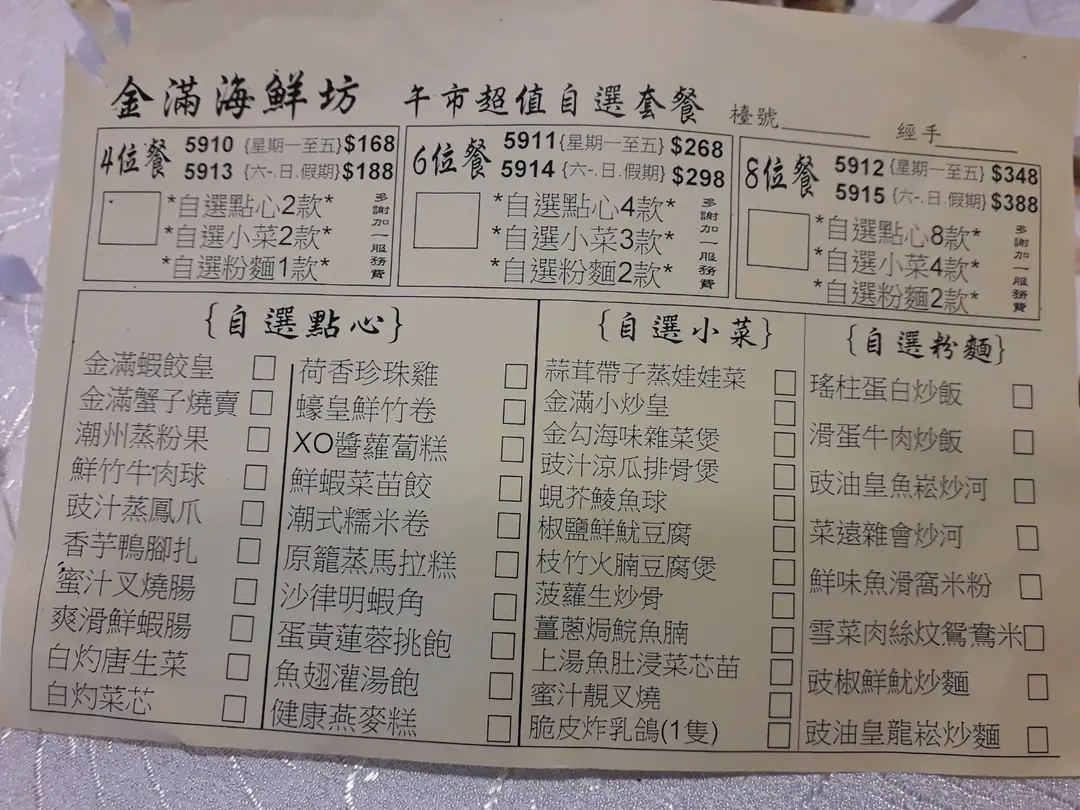 金滿海鮮坊 午市超值自選套餐 檯號 經手
4位餐
5910 {星期一至五}$168
5913 {六-.日.假期}$188
*自選點心2款*
*自選小菜2款*
*自選粉麵1款*
多謝加一服務費
6位餐
5911 {星期一至五} $268
5914 {六-.日.假期} $298
*自選點心4款*
*自選小菜3款*
*自選粉麵2款*
多謝加一服務費
8位餐
5912 {星期一至五} $348
5915 {六-.日.假期} $388
*自選點心8款*
*自選小菜4款*
*自選粉麵2款*
多謝加一服務費
{自選點心}
金滿蝦餃皇
金滿蟹子燒賣
潮州蒸粉果
鮮竹牛肉球
豉汁蒸鳳爪
香芋鴨腳扎
蜜汁叉燒腸
爽滑鮮蝦腸
白灼唐生菜
白灼菜芯
荷香珍珠雞
蠔皇鮮竹卷
XO醬蘿蔔糕
鮮蝦菜苗餃
潮式糯米卷
原籠蒸馬拉糕
沙律明蝦角
蛋黃蓮蓉挑飽
魚翅灌湯飽
健康燕麥糕
{自選小菜}
蒜茸帶子蒸娃娃菜
金滿小炒皇
金勾海味雜菜煲
豉汁涼瓜排骨煲
蜆芥鯪魚球
椒鹽鮮魷豆腐
枝竹火腩豆腐煲
菠蘿生炒骨
薑蔥焗鯇魚腩
上湯魚肚浸菜芯苗
蜜汁靚叉燒
脆皮炸乳鴿(1隻)
{自選粉麵}
瑤柱蛋白炒飯
滑蛋牛肉炒飯
豉油皇魚崧炒河
菜遠雜會炒河
鮮味魚滑窩米粉
雪菜肉絲炆鴛鴦米
豉椒鮮魷炒麵
豉油皇龍崧炒麵